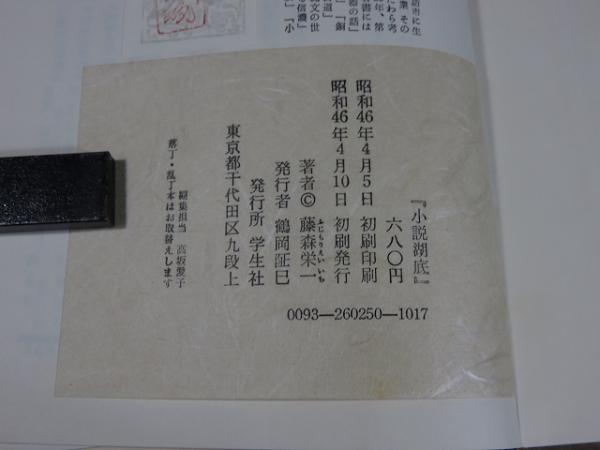 『小説湖底』
六八〇円
昭和46年4月5日 初刷印刷
昭和46年4月10日 初刷発行
著者© 藤森栄一
ふじもりえいいち
発行者 鶴岡阷巳
発行所 学生社
東京都千代田区九段上
編集担当 高坂愛子
落丁・乱丁本はお取替えします
0093―260250―1017